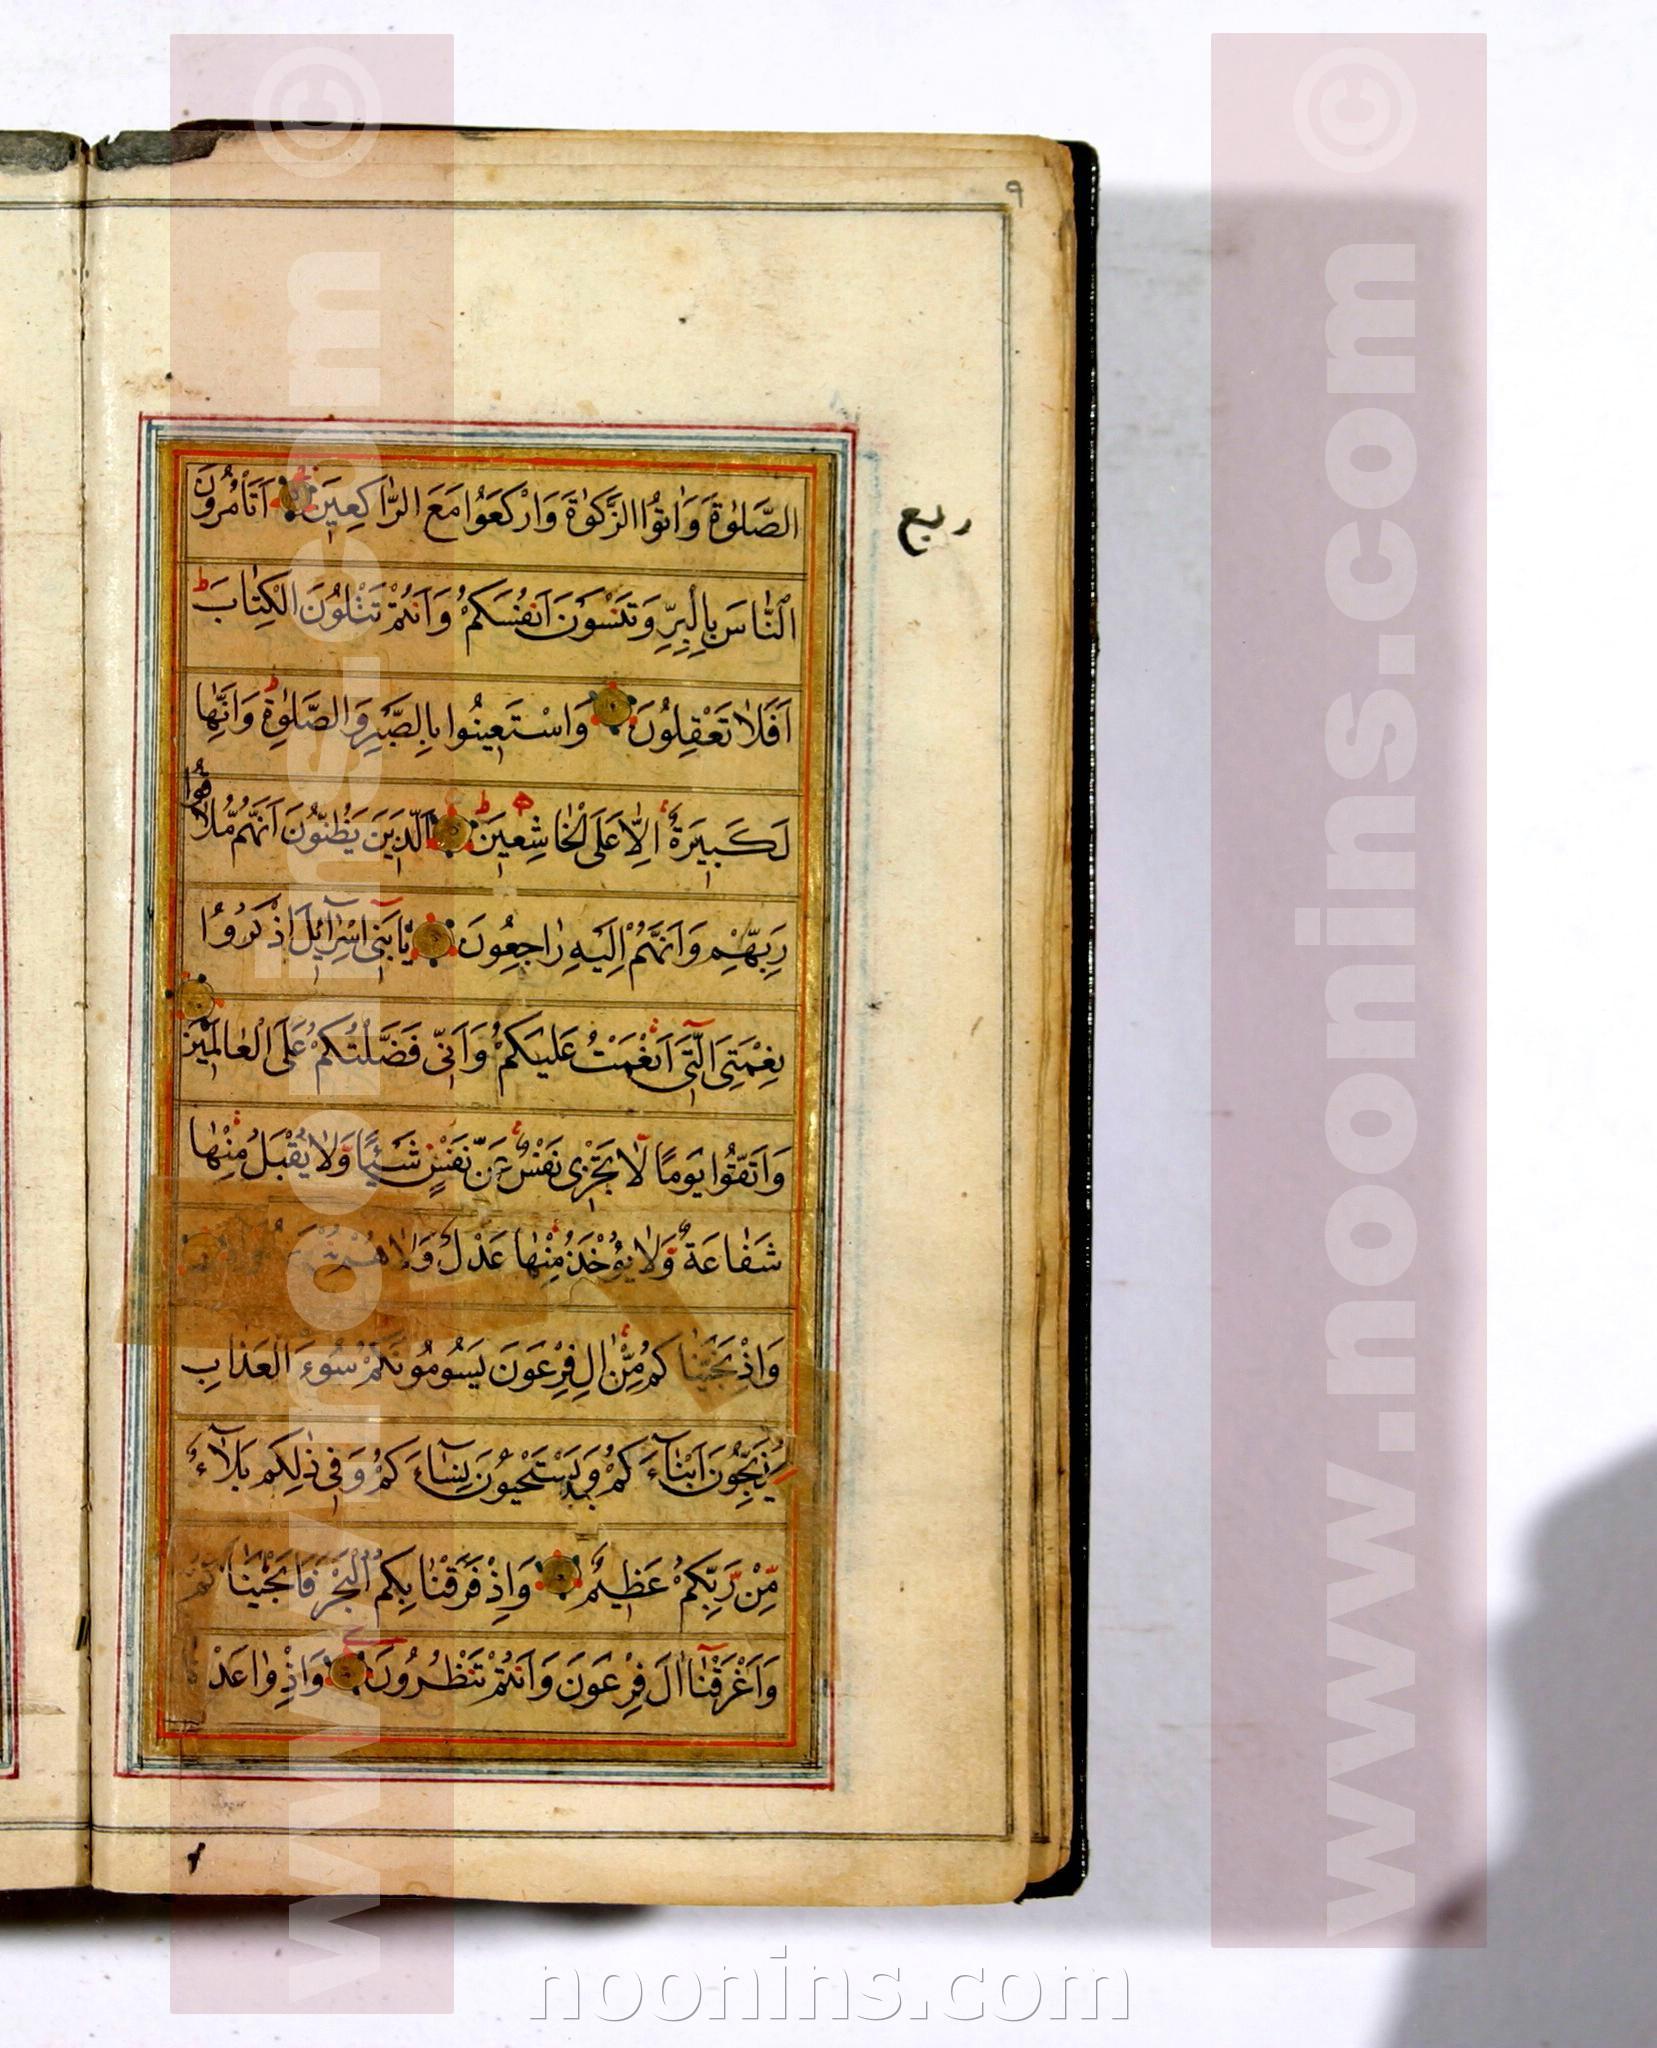 ٩
ربع
الصَّلٰوةَ وَاٰتُوا الزَّكٰوةَ وَارْكَعُوا مَعَ الرَّاكِعِينَ اَتَأْمُرُونَ
النَّاسَ بِالْبِرِّ وَتَنْسَوْنَ اَنْفُسَكُمْ وَاَنْتُمْ تَتْلُونَ الْكِتٰابَ ط
اَفَلٰا تَعْقِلُونَ وَاسْتَعِينُوا بِالصَّبْرِ وَالصَّلٰوةِ ط وَاِنَّهٰا
لَكَبِيرَةٌ اِلّٰا عَلَى الْخٰاشِعِينَ الَّذِينَ يَظُنُّونَ اَنَّهُمْ مُلٰاقُوا
رَبِّهِمْ وَاَنَّهُمْ اِلَيْهِ رٰاجِعُونَ يٰا بَنِي اِسْرٰآئِيلَ اذْكُرُوا
نِعْمَتِيَ الَّتِي اَنْعَمْتُ عَلَيْكُمْ وَاَنِّي فَضَّلْتُكُمْ عَلَى الْعٰالَمِينَ
وَاتَّقُوا يَوْمًا لٰا تَجْزِي نَفْسٌ عَنْ نَفْسٍ شَيْئًا وَلٰا يُقْبَلُ مِنْهٰا
شَفٰاعَةٌ وَلٰا يُؤْخَذُ مِنْهٰا عَدْلٌ وَلٰا هُمْ
وَاِذْ نَجَّيْنٰاكُمْ مِنْ اٰلِ فِرْعَوْنَ يَسُومُونَكُمْ سُوٓءَ الْعَذٰابِ
يُذَبِّحُونَ اَبْنٰآءَكُمْ وَيَسْتَحْيُونَ نِسٰآءَكُمْ وَفِي ذٰلِكُمْ بَلٰآءٌ
مِنْ رَبِّكُمْ عَظِيمٌ وَاِذْ فَرَقْنٰا بِكُمُ الْبَحْرَ فَاَنْجَيْنٰاكُمْ
وَاَغْرَقْنٰا اٰلَ فِرْعَوْنَ وَاَنْتُمْ تَنْظُرُونَ وَاِذْ وٰاعَدْنٰا
www.noonins.com ©
www.noonins.com ©
noonins.com